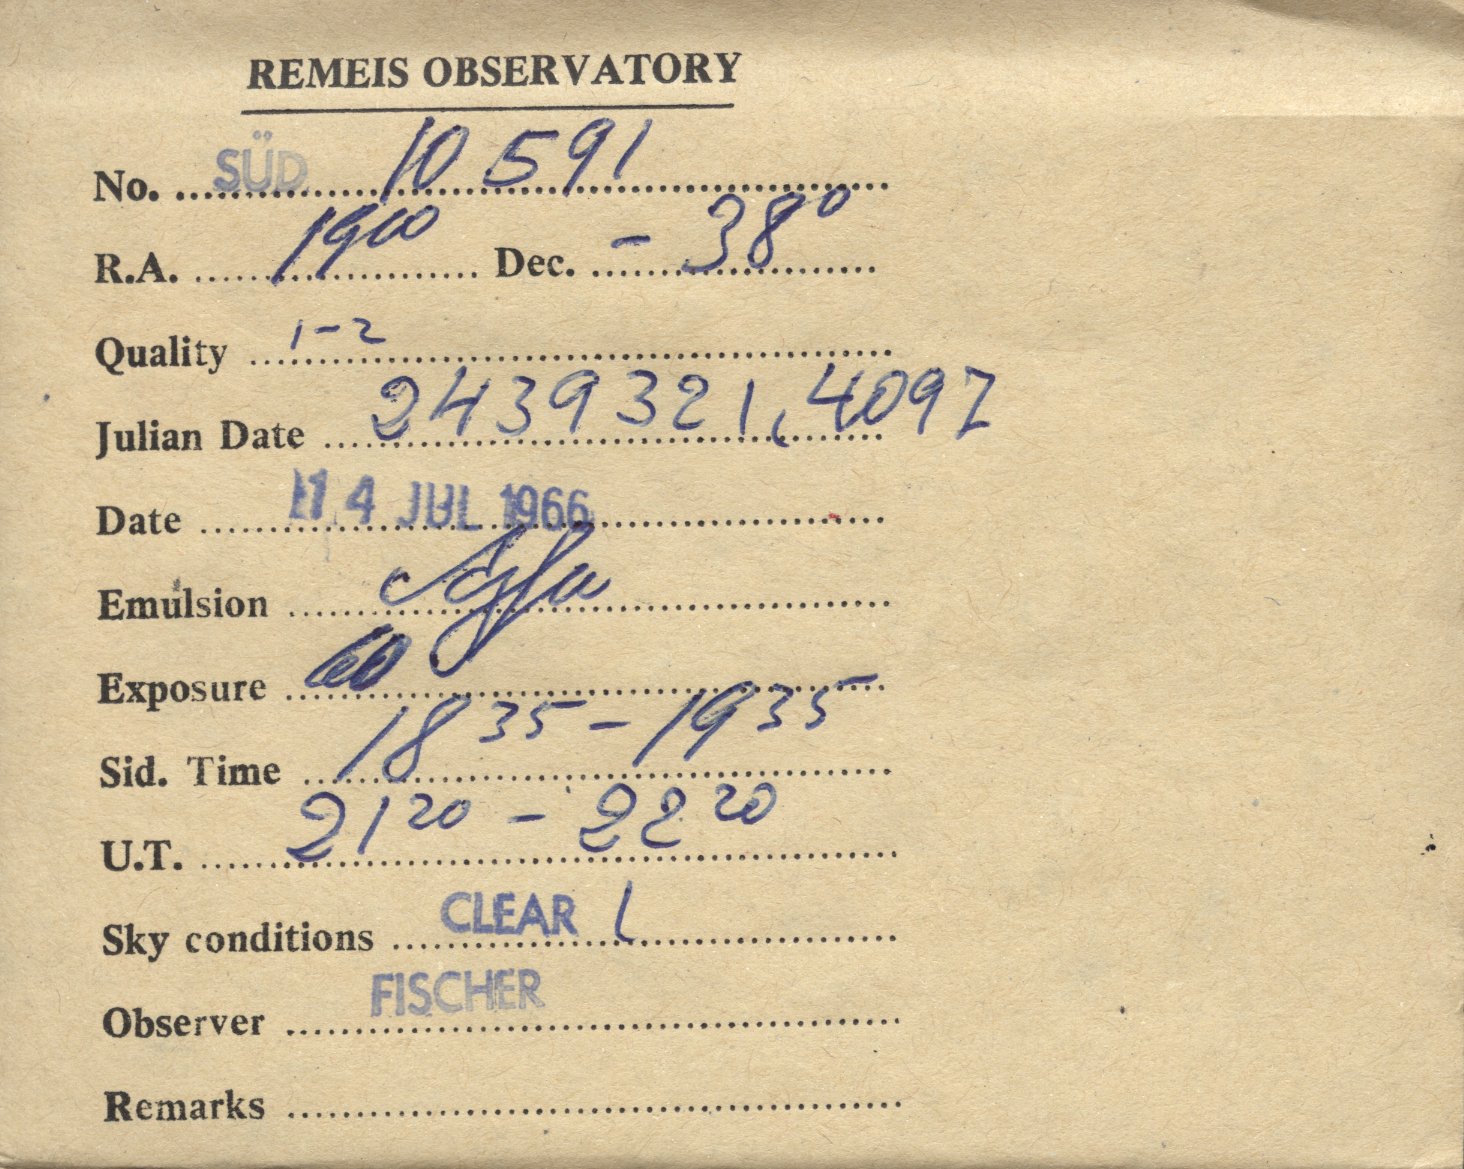 REMEIS OBSERVATORY
No. SÜD 10 591
R.A. 19⁰⁰ Dec. - 38⁰
Quality 1-2
Julian Date 2439321,4097
Date 14 JUL 1966
Emulsion Agfa
Exposure 60
Sid. Time 18³⁵ - 19³⁵
U.T. 21²⁰ - 22²⁰
Sky conditions CLEAR 1
Observer FISCHER
Remarks